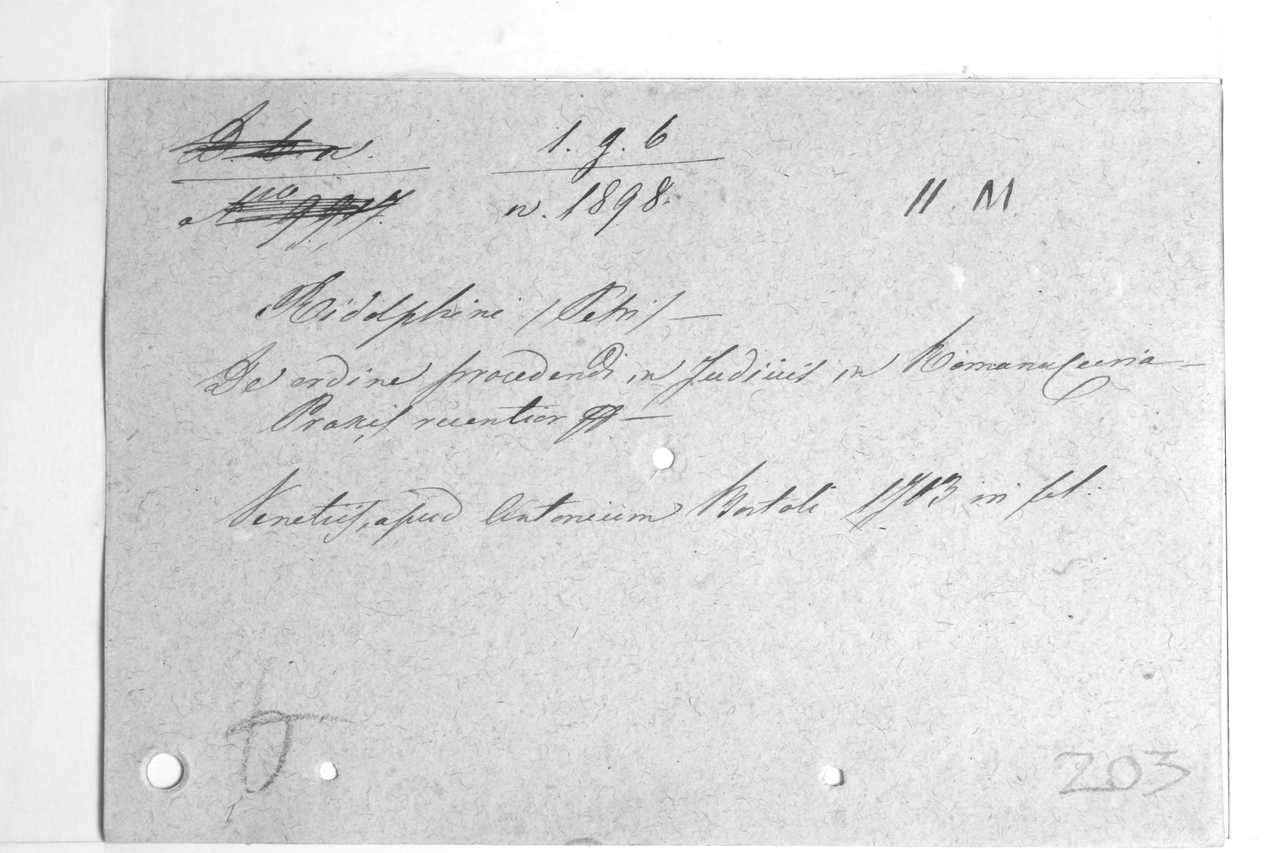 1. g. 6
n. 1898. 11. M
Ridolphini (Petri) —
De ordine procedendi in Judiciis in Romana Curia —
Praxis recentior —
Venetiis, apud Antonium Bortoli 1713 in fol.
203